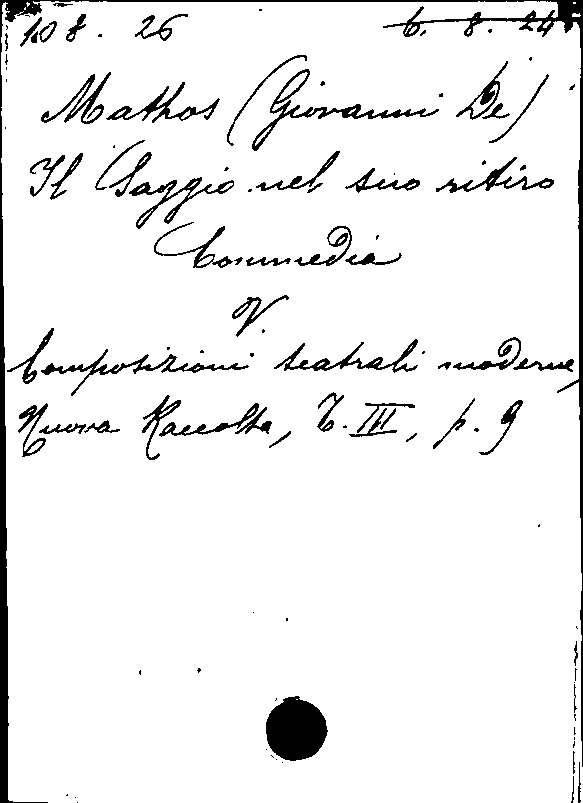 108. 26 6. 8. 24
Mathos (Giovanni De)
Il Saggio nel suo ritiro
Commedia
V.
Composizioni teatrali moderne,
Nuova Raccolta, T. III, p. 9